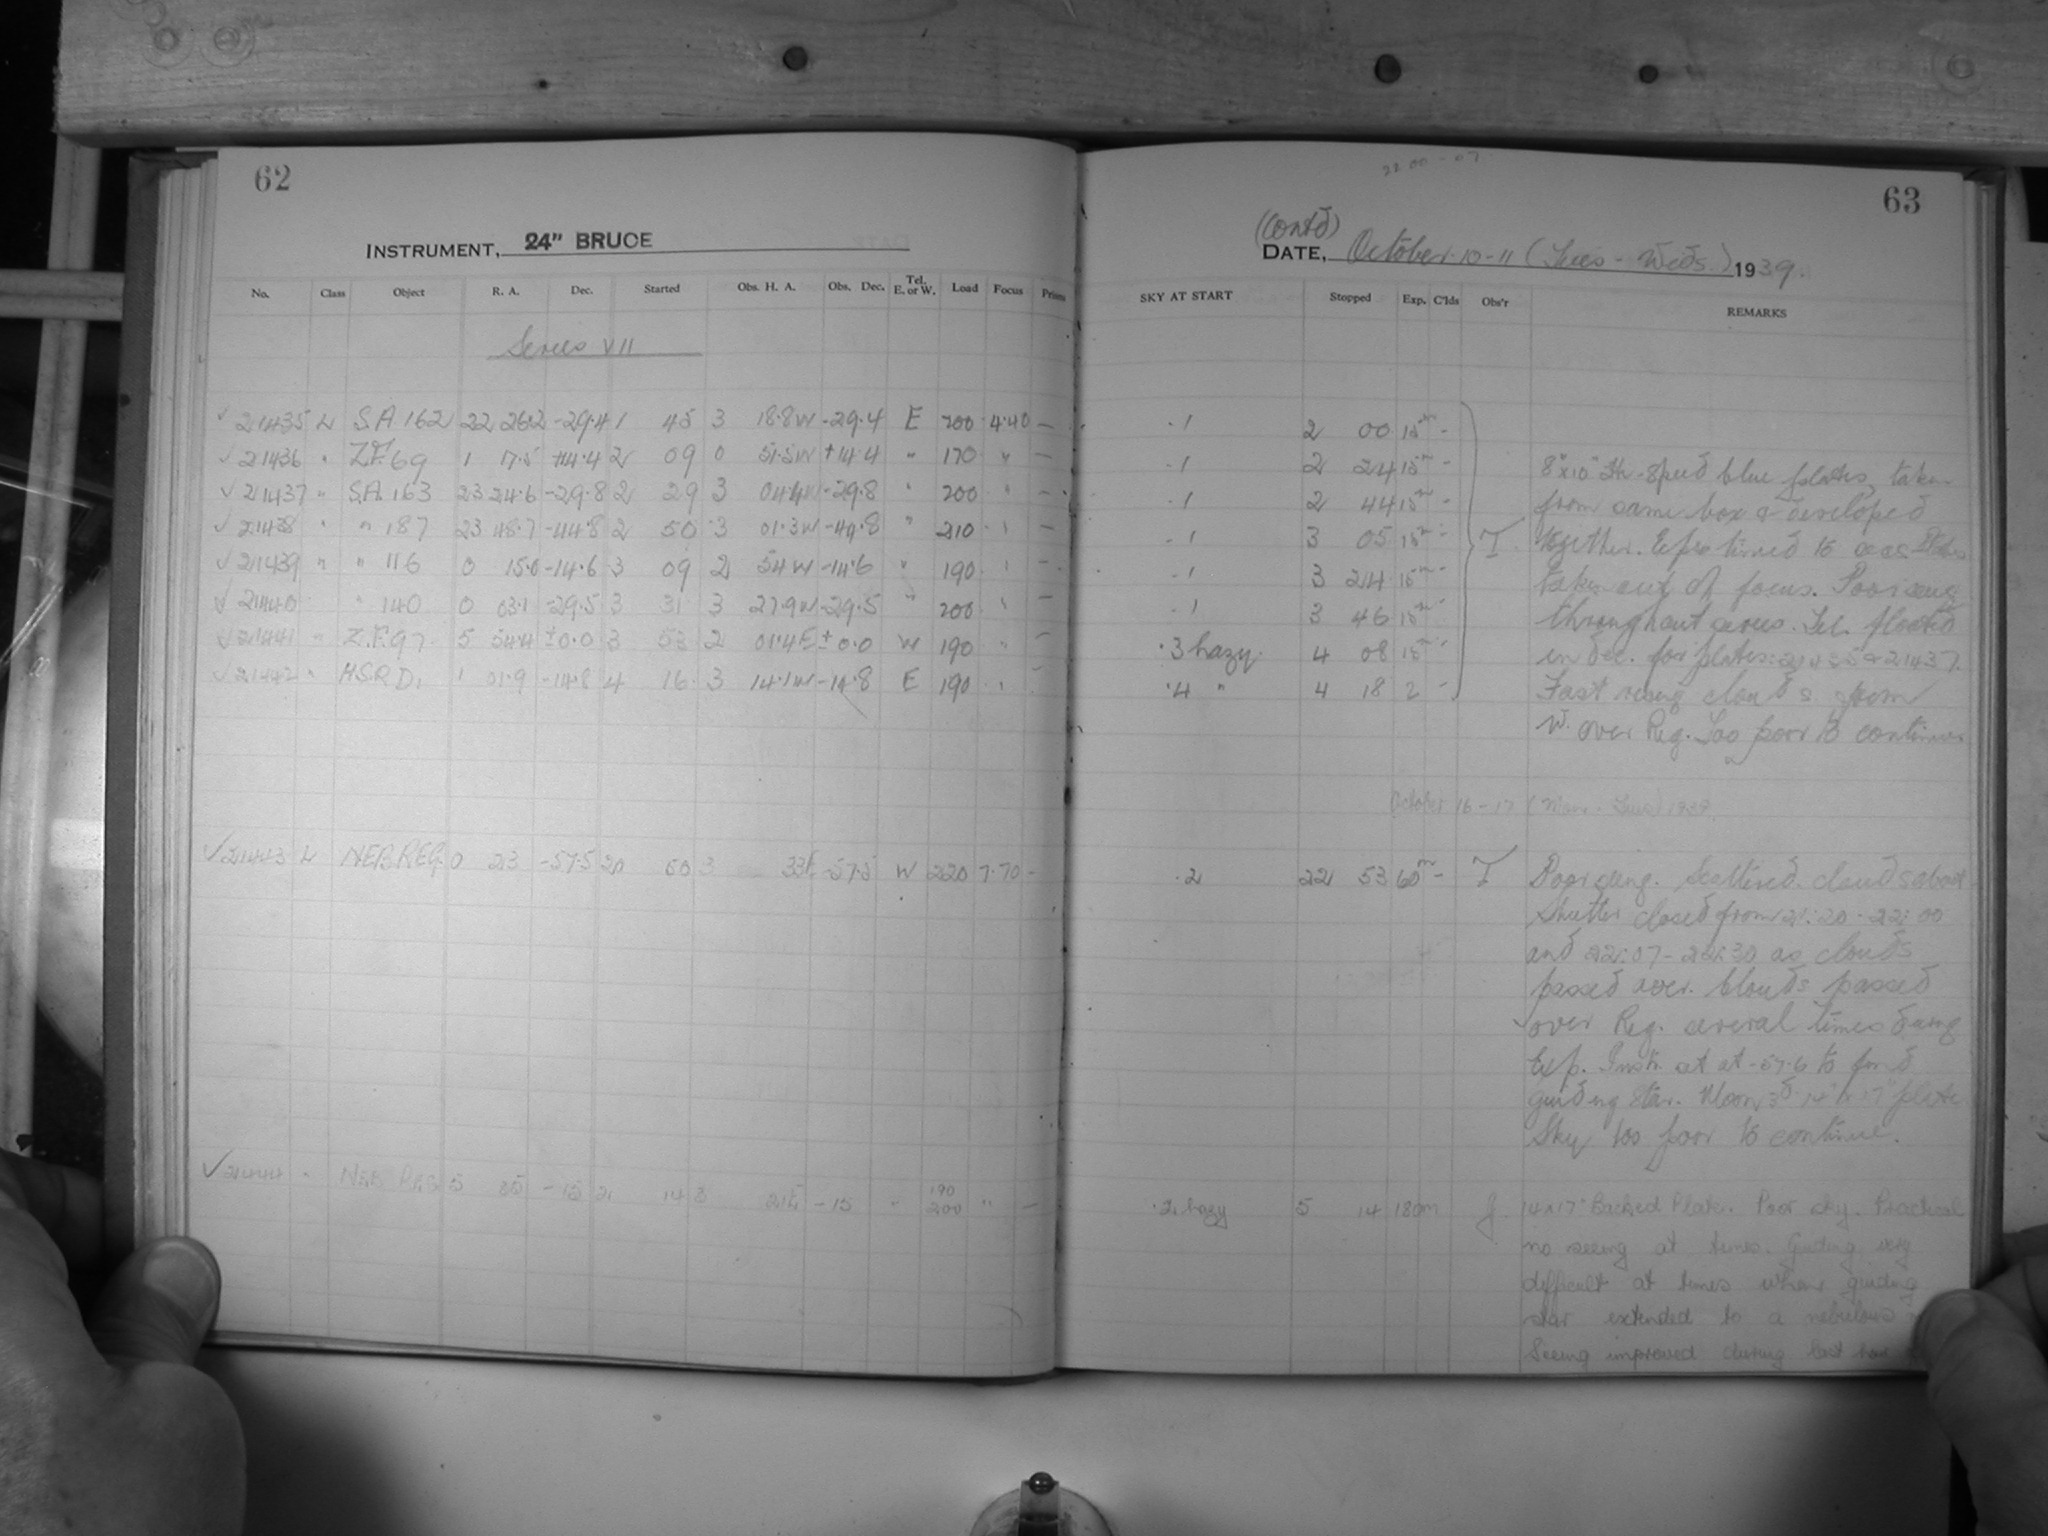 62
INSTRUMENT, 24" BRUCE
No. Class Object R. A. Dec. Started Obs. H. A. Obs. Dec. Tel. E. or W. Load Focus Prism
Series VII
✓ 21435 L S.A 162 22 26.2 -29.4 1 45 3 18.8W -29.4 E 200 4.40 —
✓ 21436 " Z.F. 69 1 17.5 +14.4 2 09 0 51.5W +14.4 " 170 " —
✓ 21437 " S.A. 163 23 24.6 -29.8 2 29 3 04.4W -29.8 " 200 " —
✓ 21438 " " 187 23 48.7 -44.8 2 50 3 01.3W -44.8 " 210 " —
✓ 21439 " " 116 0 15.0 -14.6 3 09 2 54W -14.6 " 190 " —
✓ 21440 " 140 0 03.1 -29.5 3 31 3 27.9W -29.5 " 200 " —
✓ 21441 " Z.F. 97 5 54.4 ±0.0 3 53 2 01.4E ±0.0 W 190 " —
✓ 21442 " H.S.R.D. 1 01.9 -14.8 4 16 3 14.1W -14.8 E 190 " —
✓ 21443 L NEB.REG. 0 23 -57.5 20 50 3 33E -57.5 W 220 7.70 -
✓ 21444 " NEB REG 5 35 -15 2 14 3 21E -15 " 190 200 " —
22 00 - 07
63
(Cont'd)
DATE, October 10-11 (Tues - Weds.) 1939.
SKY AT START Stopped Exp. C'lds Obs'r REMARKS
.1 2 00 15m -
.1 2 24 15m - 8"x10" Hi-Speed blue plates, taken
.1 2 44 15m - from same box & developed
.1 3 05 15m - T. together. Exps timed to secs
.1 3 24 15m - taken out of focus. Poor seeing
.1 3 46 15m throughout series. Tel. floated
.3 hazy. 4 08 15m in Dec. for plates: 21435 & 21437.
.4 " 4 18 2 - Fast rising clouds from
W. over Reg. Too poor to continue
October 16-17 (Mon - Tues) 1939.
.2 22 53 60m - T Poor seeing. Scattered clouds about
Shutter closed from 21:20 - 22:00
and 22:07 - 22:30 as clouds
passed over. Clouds passed
over Reg. several times during
Exp. Instr. set at -57.6 to find
guiding star. Moon 3d 14"x17" plate
Sky too poor to continue.
.2 hazy 5 14 180m J. 14x17" Backed Plate. Poor sky. Practical
no seeing at times. Guiding very
difficult at times when guiding
star extended to a nebulous
Seeing improved during last hour